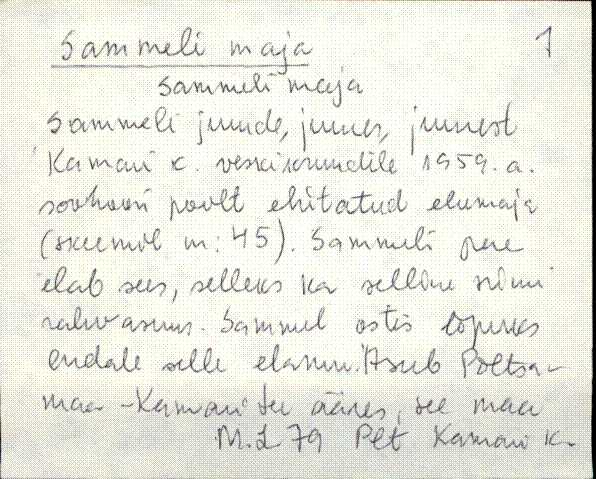 Sammeli maja 1
Sammeli maja
Sammeli juurde, juures, juurest
Kamari k. veskikrundile 1959. a.
sovhoosi poolt ehitatud elumaja
(skeemil nr: 45). Sammeli pere
elab sees, selleks ka selline nimi
rahvasuus. Sammel ostis lõpuks
endale selle elamu. Asub Põltsa-
maa-Kamari tee ääres, see maa
M.L 79 Plt Kamari k.